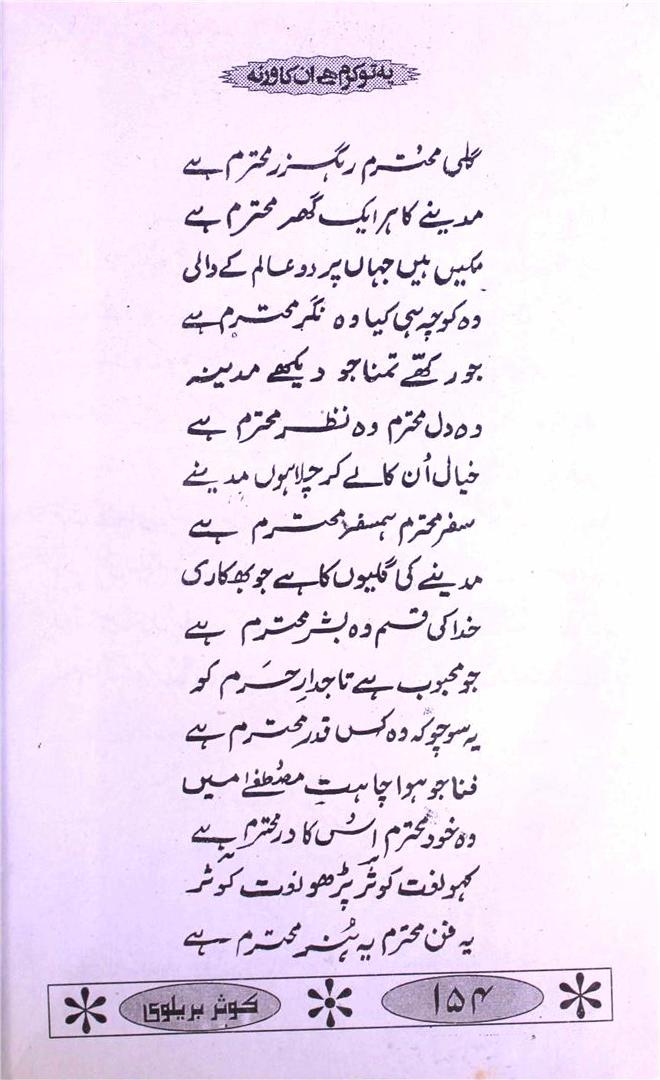 یہ تو کرم ہے ان کا ورنہ
گلی محترم رہگزر محترم ہے
مدینے کا ہر ایک گھر محترم ہے
مکیں ہیں جہاں پر دو عالم کے والی
وہ کوچہ ہی کیا وہ نگر محترم ہے
جو رکھے تمنا جو دیکھے مدینہ
وہ دل محترم وہ نظر محترم ہے
خیال اُن کا لے کر چلا ہوں مدینے
سفر محترم ہمسفر محترم ہے
مدینے کی گلیوں کا ہے جو بھکاری
خدا کی قسم وہ بشر محترم ہے
جو محبوب ہے تاجدارِ حرَم کو
یہ سوچو کہ وہ کس قدر محترم ہے
فنا جو ہوا چاہتِ مصُطفےٰ میں
وہ خود محترم اُس کا در محترم ہے
کہو نعت کوثر پڑھو نعت کوثر
یہ فن محترم یہ ہُنر محترم ہے
۱۵۴
کوثر بریلوی